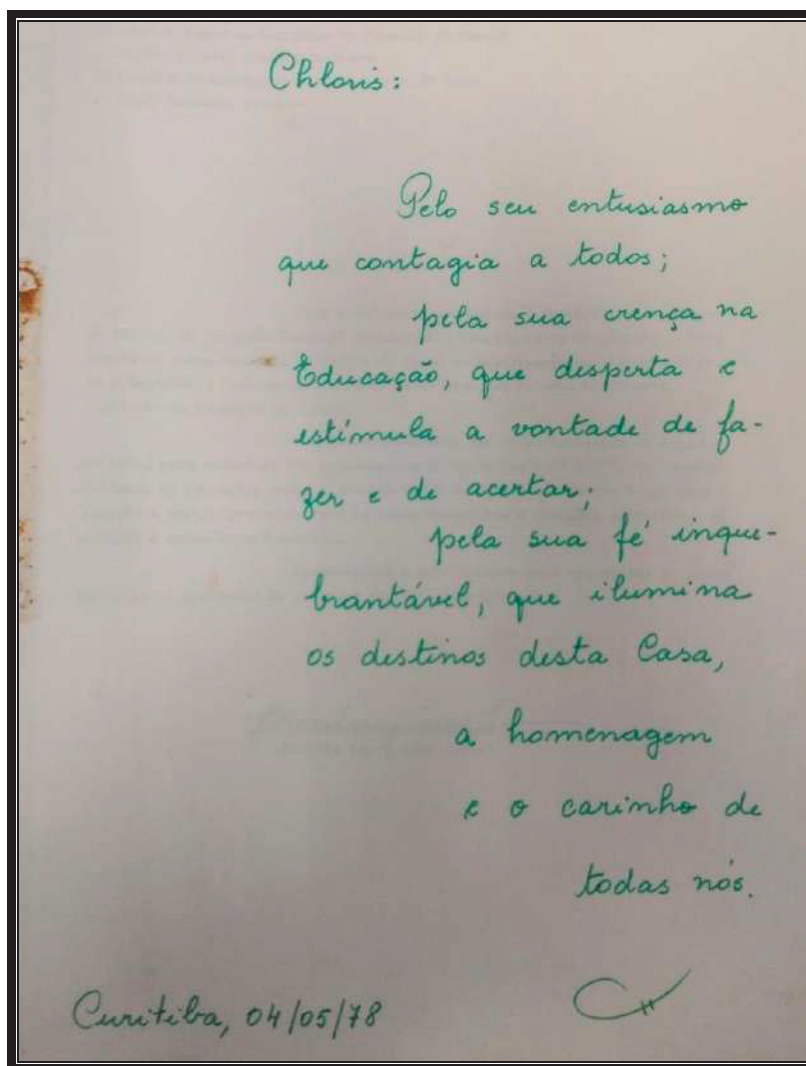 Chloris:
Pelo seu entusiasmo
que contagia a todos;
pela sua crença na
Educação, que desperta e
estimula a vontade de fa-
zer e de acertar;
pela sua fé inque-
brantável, que ilumina
os destinos desta Casa,
a homenagem
e o carinho de
todas nós.
Curitiba, 04/05/78